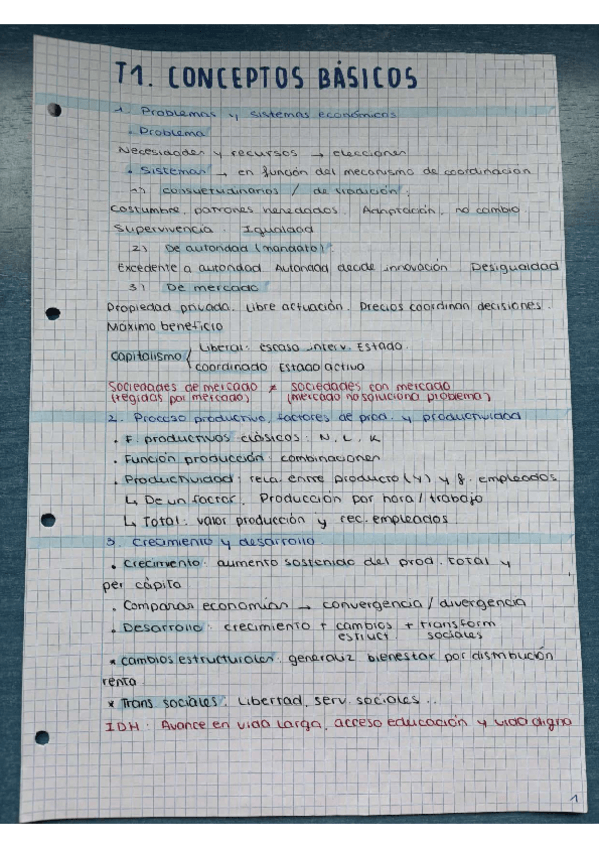 T1. CONCEPTOS BÁSICOS
1. Problemas y sistemas económicos
· Problema
Necesidades y recursos → elecciones
· Sistemas → en función del mecanismo de coordinación
1) consuetudinarios / de tradición:
Costumbre, patrones heredados. Adaptación, no cambio
Supervivencia. Igualdad
2) De autoridad (mandato):
Excedente a autoridad. Autoridad decide innovación. Desigualdad
3) De mercado
Propiedad privada. Libre actuación. Precios coordinan decisiones.
Máximo beneficio
Capitalismo / Liberal: escaso interv. Estado.
coordinado Estado activo
Sociedades de mercado ≠ sociedades con mercado
(regidas por mercado) (mercado no soluciona problema)
2. Proceso productivo, factores de prod. y productividad
· F. productivos clásicos: N, L, K
· Función producción: combinaciones
· Productividad: rela. entre producto (Y) y f. empleados
↳ De un factor. Producción por hora / trabajo
↳ Total: valor producción y rec. empleados
3. Crecimiento y desarrollo
· Crecimiento: aumento sostenido del prod. total y
per cápita
· Comparar economías → convergencia / divergencia
· Desarrollo: crecimiento + cambios + transform
estruct. sociales
* cambios estructurales: generaliz bienestar por distribución
renta
* Trans sociales: Libertad, serv. sociales...
IDH: Avance en vida larga, acceso educación y vida digna
1